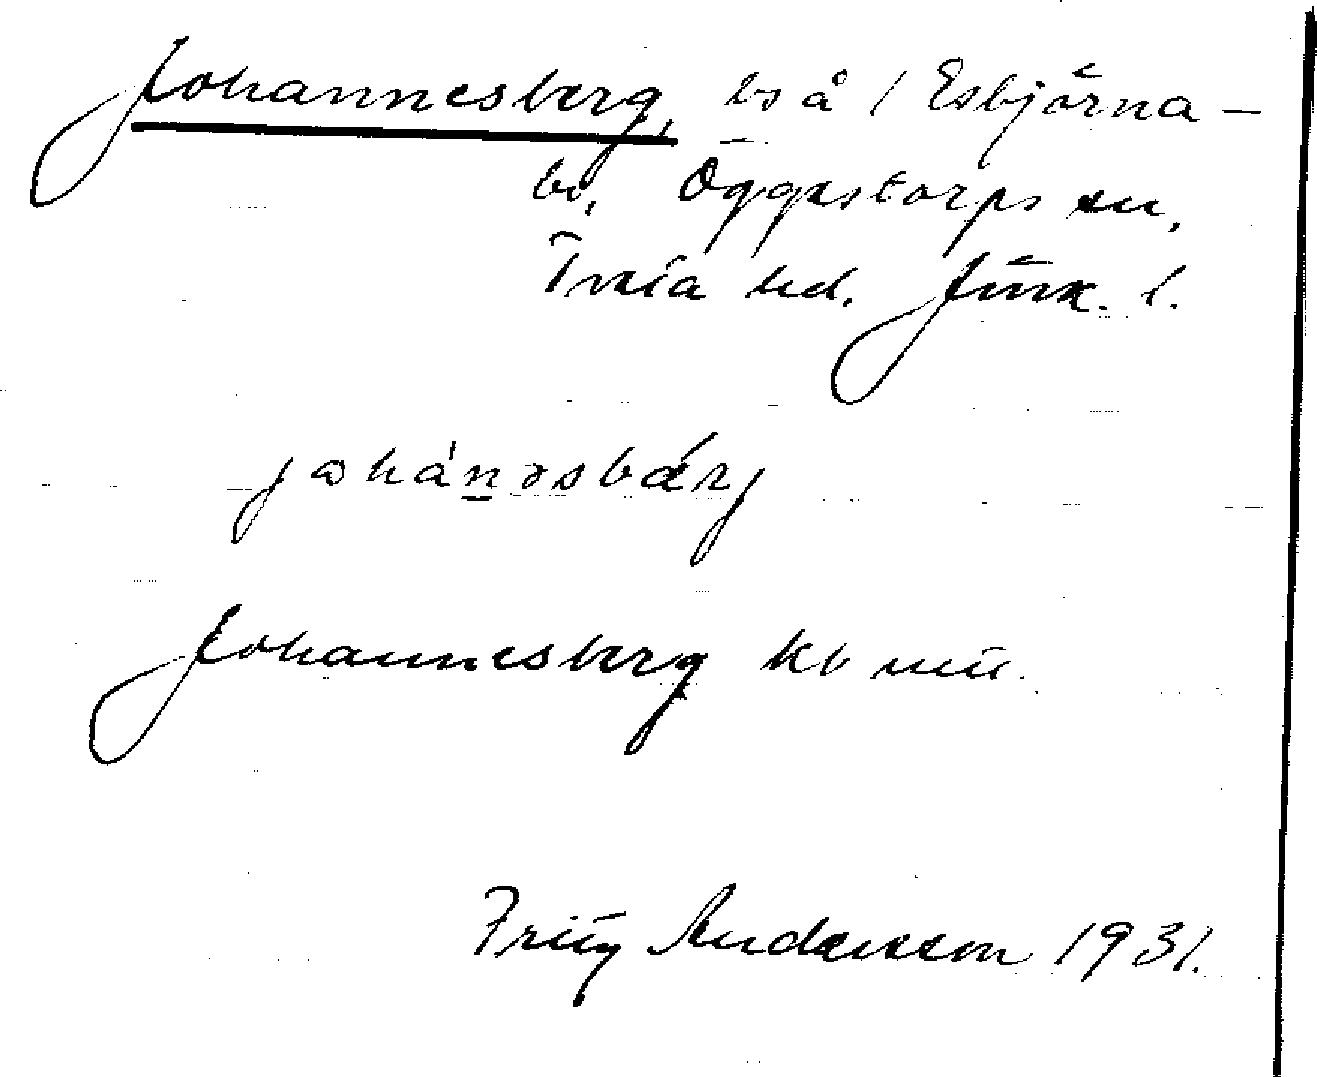 Johannesberg, bs å 1 Esbjörna-
bo, Öggestorps sn,
Tveta hd. Jönk. l.
johánəsbárj
Johannesberg kb mtl.
Fritz Andersson 1931.